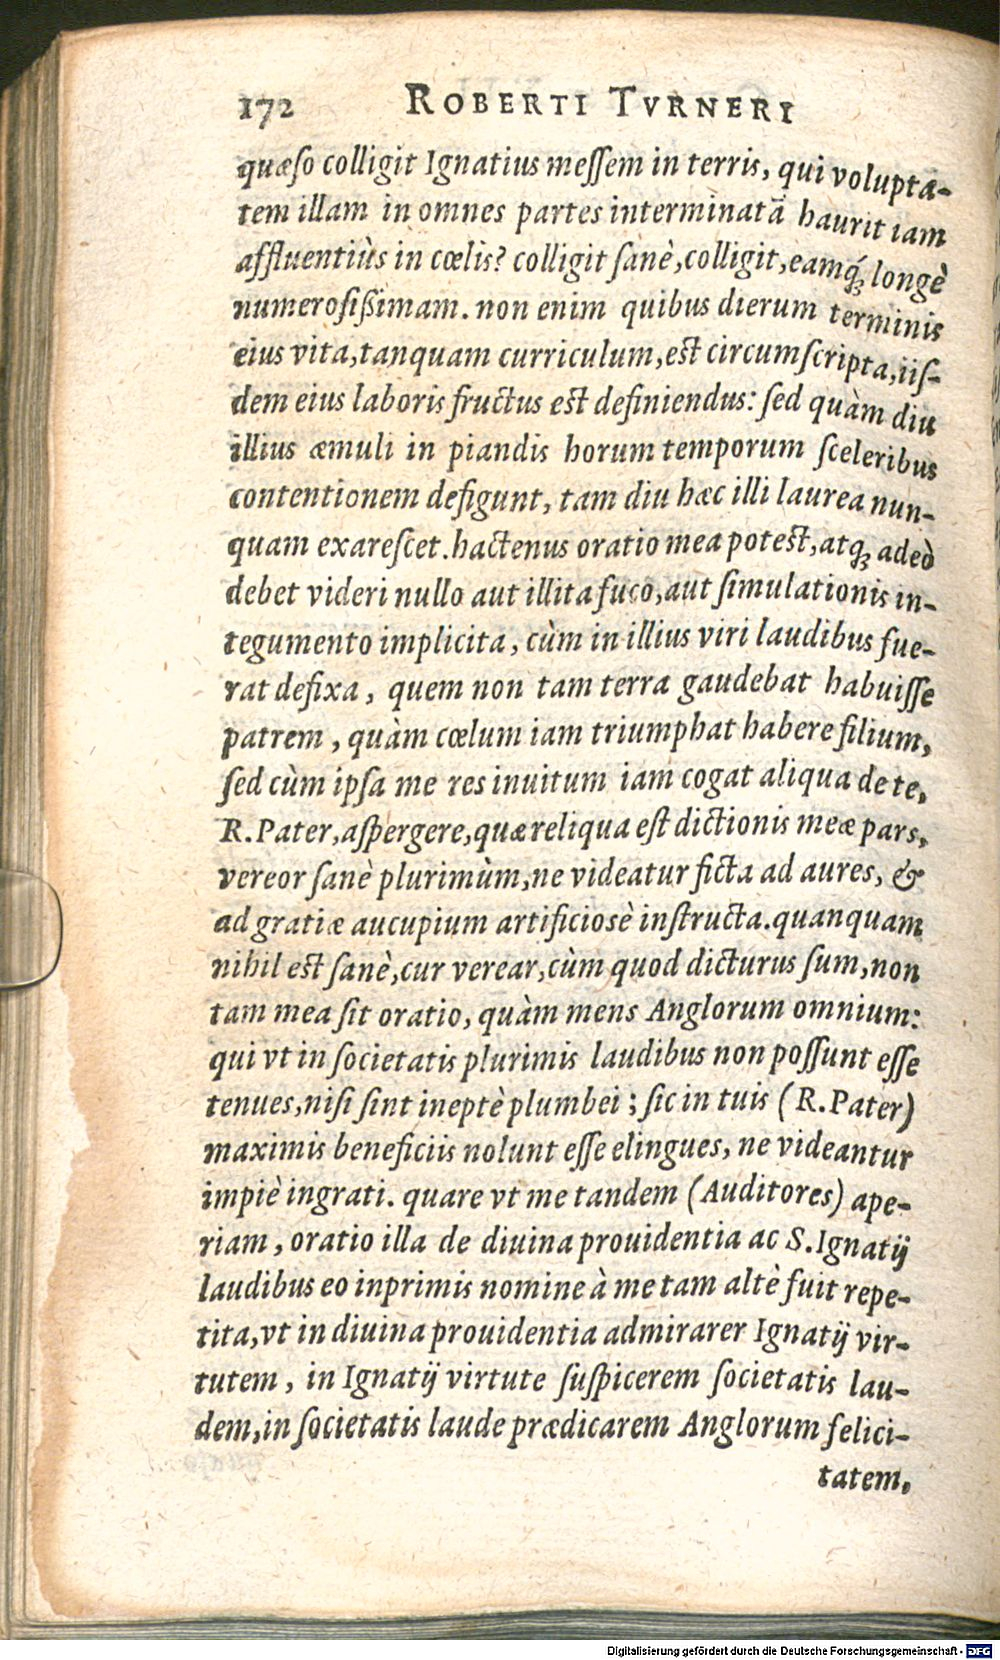 172 ROBERTI TVRNERI
quæſo colligit Ignatius meſſem in terris, qui volupta-
tem illam in omnes partes interminatā haurit iam
affluentiùs in cœlis? colligit ſanè, colligit, eamq́; longè
numeroſißimam. non enim quibus dierum terminis
eius vita, tanquam curriculum, est circumſcripta, iiſ-
dem eius laboris fructus est definiendus: ſed quàm diu
illius æmuli in piandis horum temporum ſceleribus
contentionem defigunt, tam diu hæc illi laurea nun-
quam exareſcet. hactenus oratio mea potest, atq; adeò
debet videri nullo aut illita fuco, aut ſimulationis in-
tegumento implicita, cùm in illius viri laudibus fue-
rat defixa, quem non tam terra gaudebat habuiſſe
patrem, quàm cœlum iam triumphat habere filium,
ſed cùm ipſa me res inuitum iam cogat aliqua de te,
R. Pater, aſpergere, quæ reliqua eſt dictionis meæ pars,
vereor ſanè plurimùm, ne videatur ficta ad aures, &
ad gratiæ aucupium artificiosè inſtructa. quanquam
nihil est ſanè, cur verear, cùm quod dicturus ſum, non
tam mea ſit oratio, quàm mens Anglorum omnium:
qui vt in ſocietatis plurimis laudibus non poſſunt eſſe
tenues, niſi ſint ineptè plumbei; ſic in tuis (R. Pater)
maximis beneficiis nolunt eſſe elingues, ne videantur
impiè ingrati. quare vt me tandem (Auditores) ape-
riam, oratio illa de diuina prouidentia ac S. Ignatij
laudibus eo inprimis nomine à me tam altè fuit repe-
tita, vt in diuina prouidentia admirarer Ignatij vir-
tutem, in Ignatij virtute ſuſpicerem ſocietatis lau-
dem, in ſocietatis laude prædicarem Anglorum felici-
tatem,
Digitalisierung gefördert durch die Deutsche Forschungsgemeinschaft - DFG